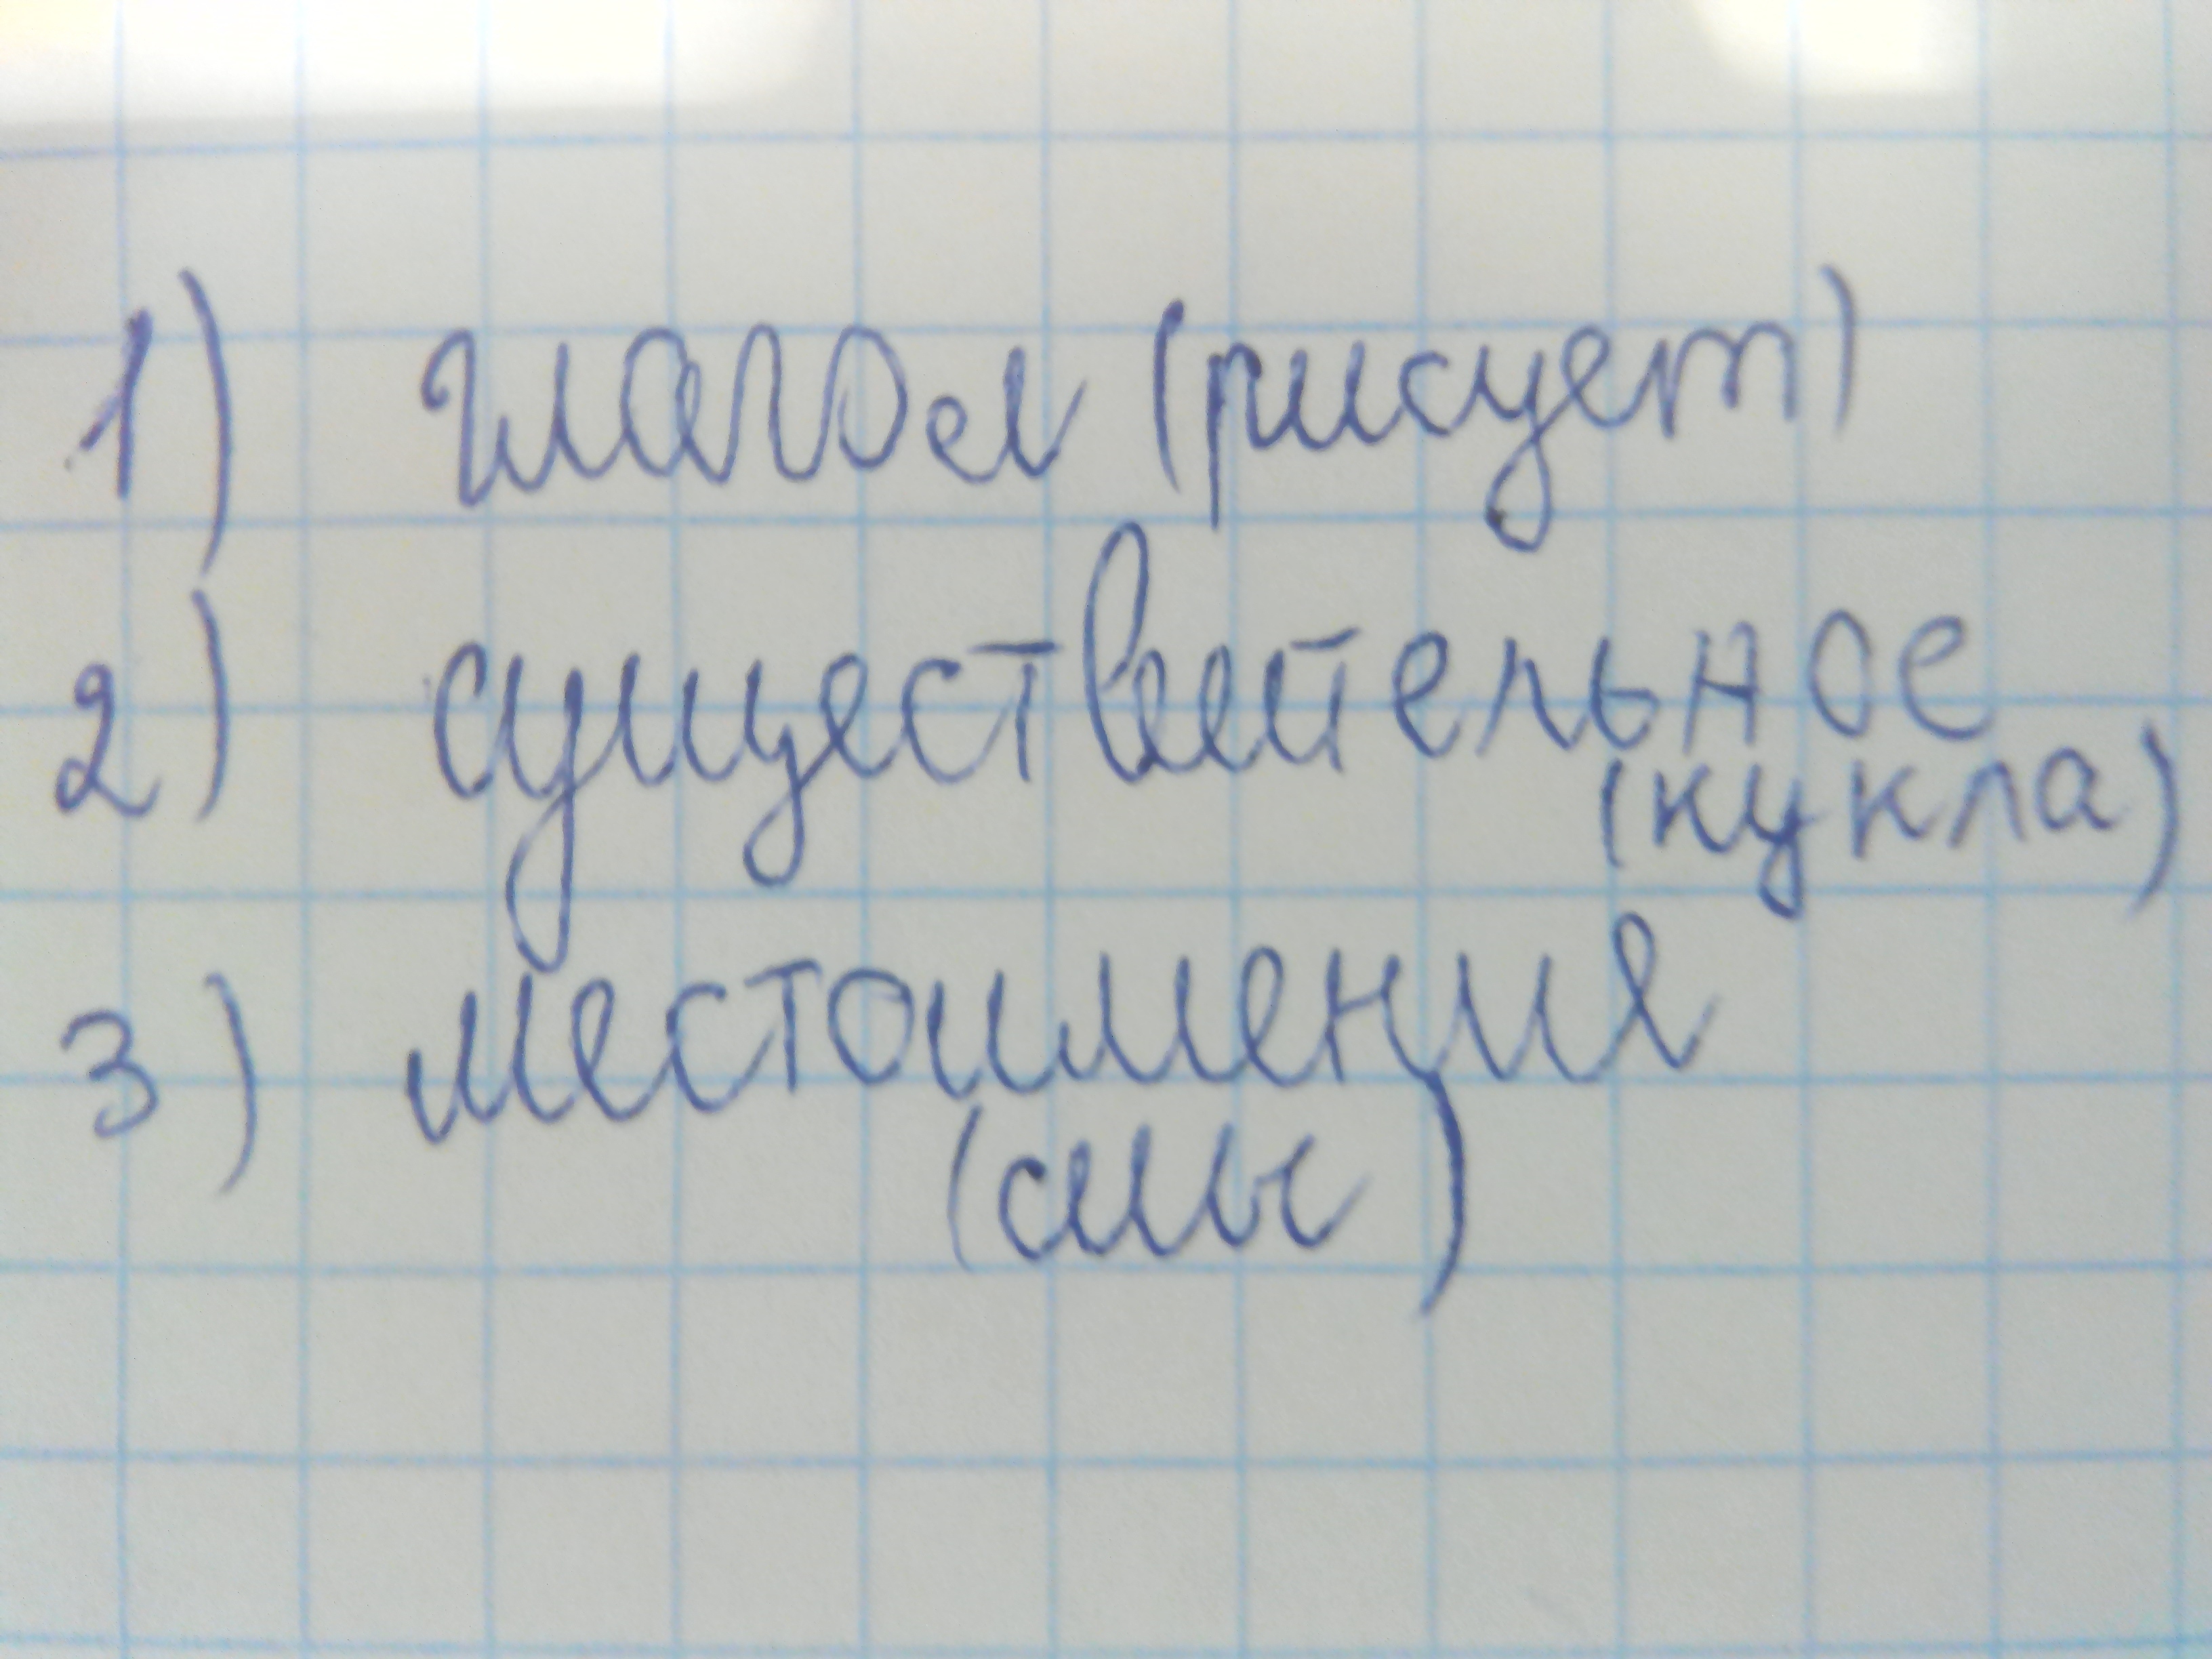 1) глагол (рисует)
2) существительное
(кукла)
3) местоимения
(мы)